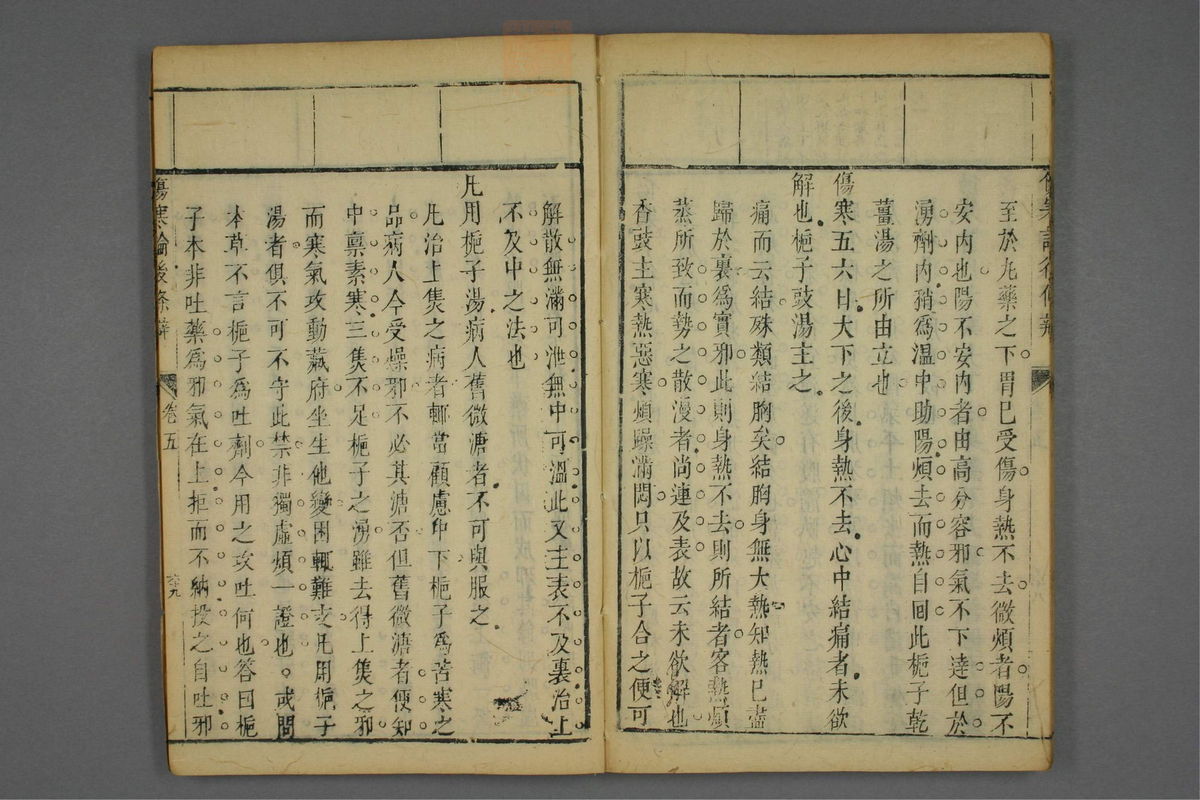 至於九藥之下胃已受傷身熱不去微煩者陽不
安内也陽不安内者由高分容邪氣不下達但於
湧劑内稍爲温中助陽煩去而熱自回此梔子乾
薑湯之所由立也
傷寒五六日大下之後身熱不去心中結痛者未欲
解也梔子豉湯主之
痛而云結殊類結胸矣結胸身無大熱知熱已盡
歸於裏爲實邪此則身熱不去則所結者客熱煩
蒸所致而勢之散漫者尚連及表故云未欲解也
香豉主寒熱惡寒煩躁滿悶只以梔子合之便可
解散無滿可泄無中可温此又主表不及裏治上
不及中之法也
凡用梔子湯病人舊微溏者不可與服之
凡治上焦之病者輒當顧慮中下梔子爲苦寒之
品病人今受燥邪不必其溏否但舊微溏者便知
中禀素寒三焦不足梔子之湧雖去得上焦之邪
而寒氣攻動藏府坐生他變困輒難支凡用梔子
湯者俱不可不守此禁非獨虛煩一證也。或問
本草不言梔子爲吐劑今用之攻吐何也答曰梔
子本非吐藥爲邪氣在上拒而不納投之自吐邪
傷寒論後條辨
卷五
六十九